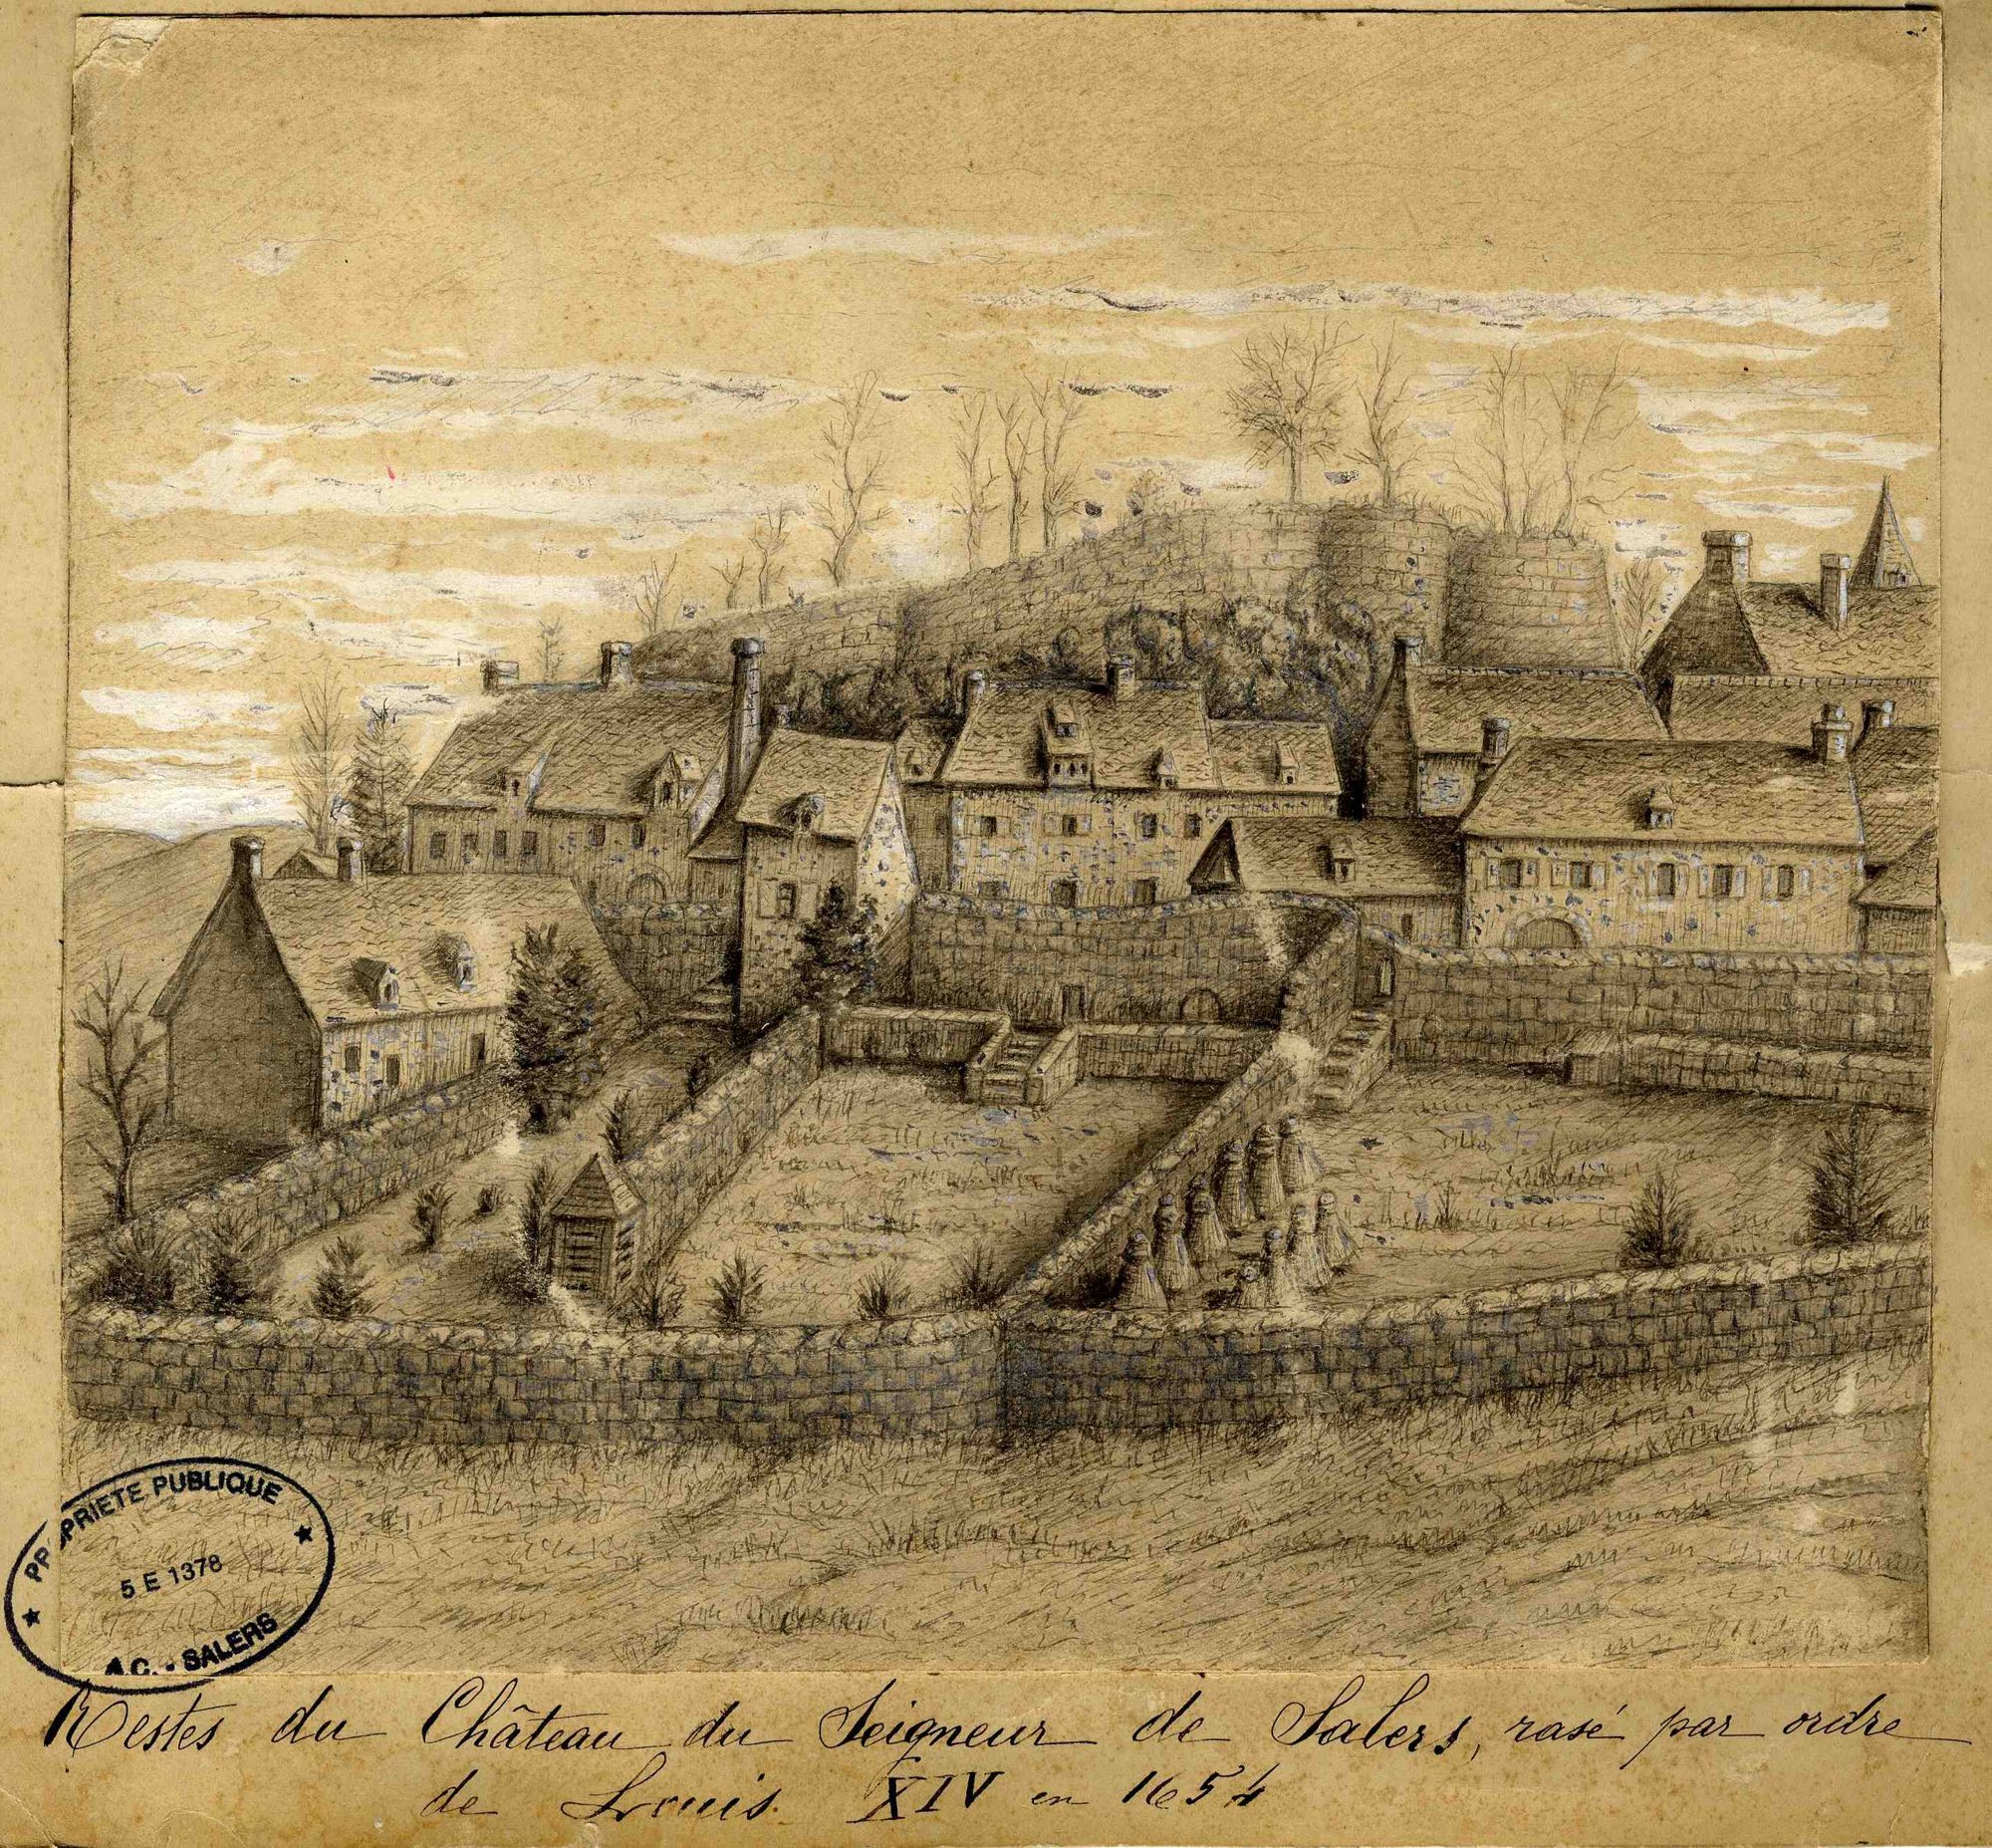 PROPRIETE PUBLIQUE
5 E 1378
A.C. - SALERS
Restes du Château du Seigneur de Salers, rasé par ordre
de Louis XIV en 1654